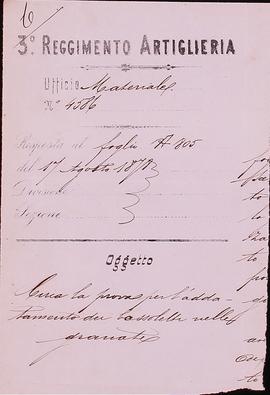 3º REGGIMENTO ARTIGLIERIA
Ufficio Materiale
Nº 4586
Risposta al foglio Nº 805
del 17 Agosto 1878
Divisione
Sezione
Oggetto
Circa la prova per l'adda-
tamento dei tassoletti nelle
granate